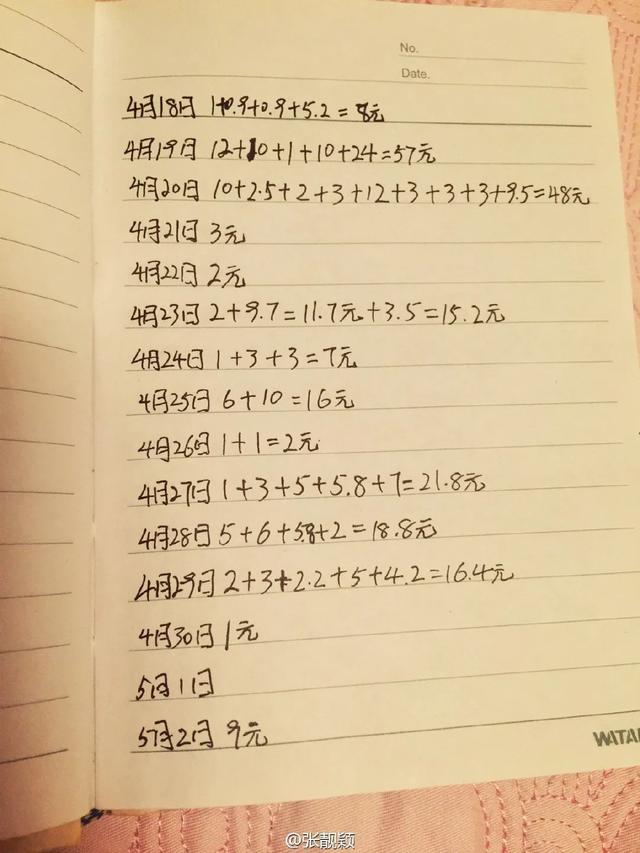 No.
Date.
4月18日 1+0.9+0.9+5.2=8元
4月19日 12+10+1+10+24=57元
4月20日 10+2.5+2+3+12+3+3+3+9.5=48元
4月21日 3元
4月22日 2元
4月23日 2+9.7=11.7元+3.5=15.2元
4月24日 1+3+3=7元
4月25日 6+10=16元
4月26日 1+1=2元
4月27日 1+3+5+5.8+7=21.8元
4月28日 5+6+5.8+2=18.8元
4月29日 2+3+2.2+5+4.2=16.4元
4月30日 1元
5月1日
5月2日 9元
WATA
@张靓颖